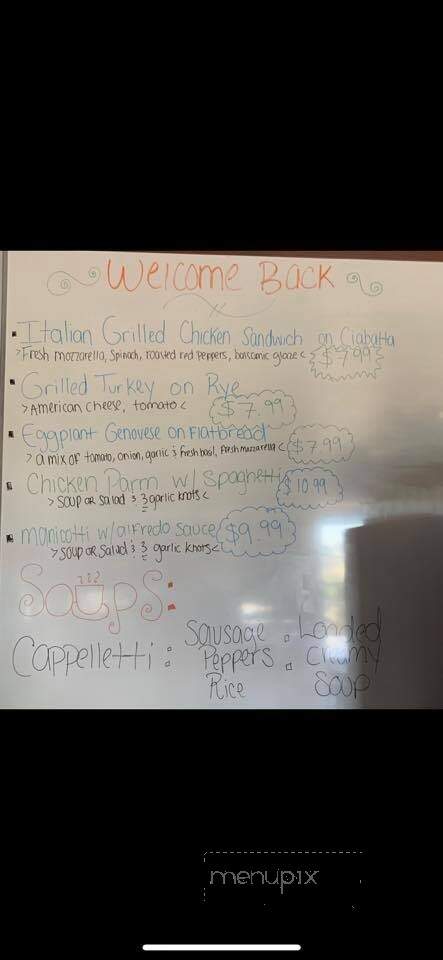 Welcome Back
Italian Grilled Chicken Sandwich on Ciabatta
>Fresh mozzarella, spinach, roasted red peppers, balsamic glaze< $7.99
Grilled Turkey on Rye
>American cheese, tomato< $7.99
Eggplant Genovese on Flatbread
>a mix of tomato, onion, garlic & fresh basil, fresh mozzarella< $7.99
Chicken Parm w/ Spaghetti
>soup or salad & 3 garlic knots< $10.99
manicotti w/alfredo sauce $9.99
>soup or salad & 3 garlic knots<
Soups:
Cappelletti : Sausage Peppers Rice : Loaded Creamy Soup
menupix